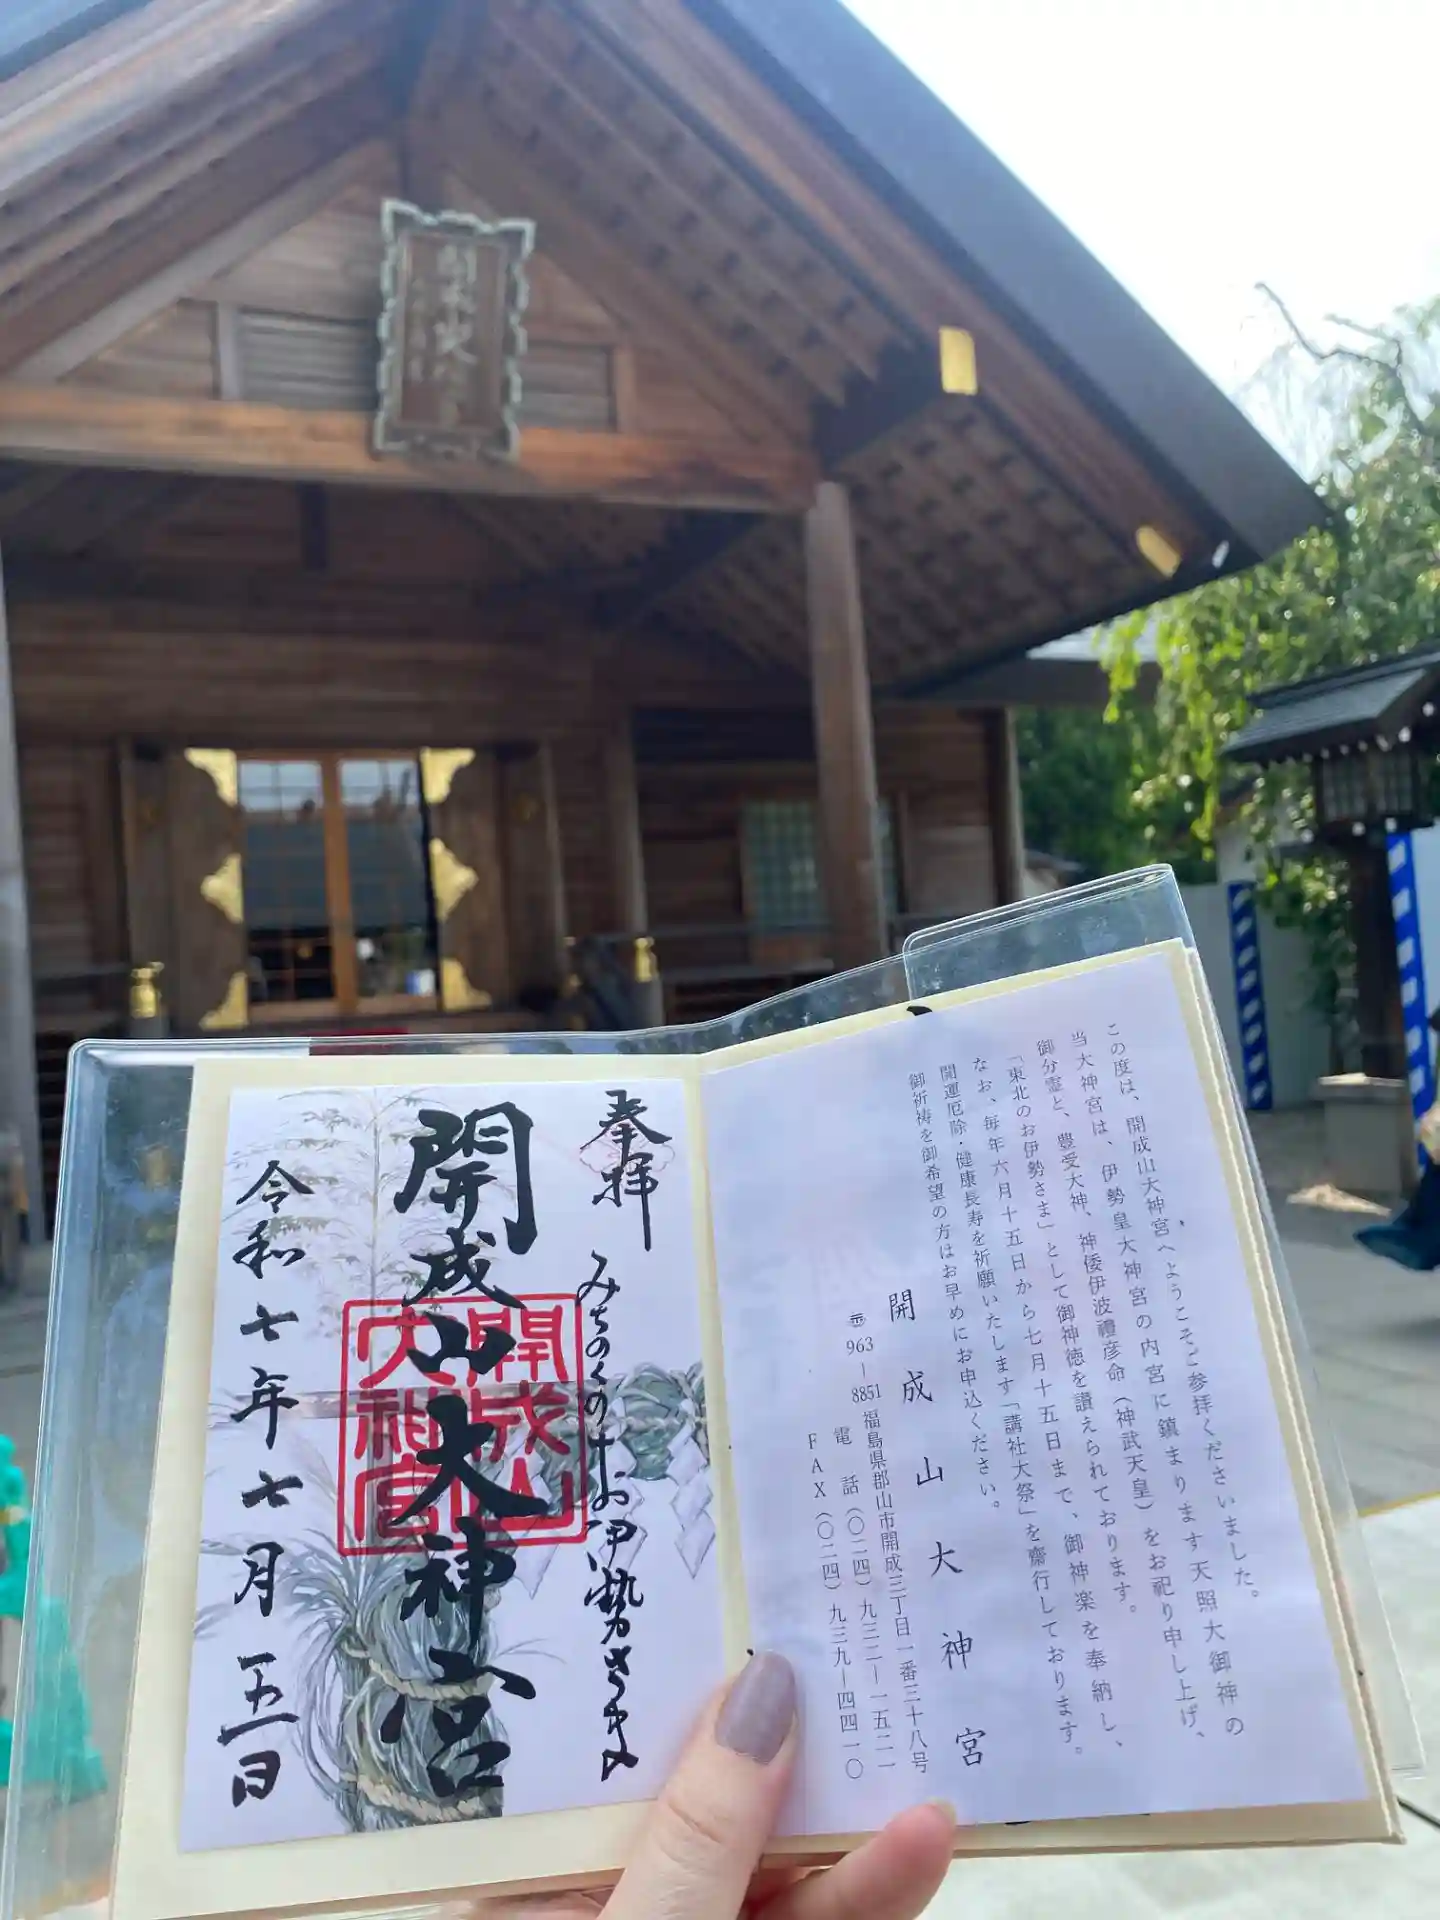 奉拝
みちのくのおお伊勢さま
開成山大神宮
開成山大神宮
令和七年七月五日
この度は、開成山大神宮へようこそご参拝くださいました。
当大神宮は、伊勢皇大神宮の内宮に鎮まります天照大御神の
御分霊と、豊受大神、神倭伊波禮彦命（神武天皇）をお祀り申し上げ、
「東北のお伊勢さま」として御神徳を讃えられております。
なお、毎年六月十五日から七月十五日まで、御神楽を奉納し、
開運厄除・健康長寿を祈願いたします「講社大祭」を齋行しております。
御祈祷を御希望の方はお早めにお申込ください。
開成山大神宮
〠963―8851 福島県郡山市開成三丁目一番三十八号
電話（〇二四）九三二―一五二一
FAX（〇二四）九三九―四四一〇